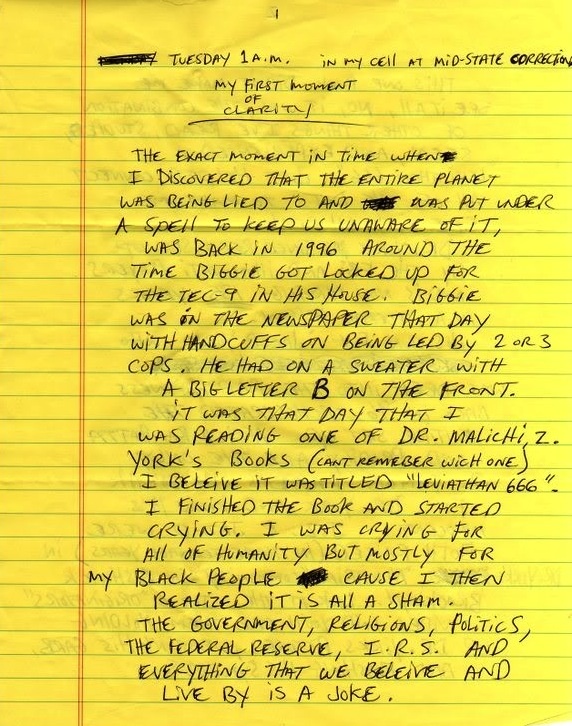 1
TUESDAY 1 A.M. IN MY CELL AT MID-STATE CORRECTION
MY FIRST MOMENT
OF
CLARITY
THE EXACT MOMENT IN TIME WHEN
I DISCOVERED THAT THE ENTIRE PLANET
WAS BEING LIED TO AND WAS PUT UNDER
A SPELL TO KEEP US UNAWARE OF IT,
WAS BACK IN 1996 AROUND THE
TIME BIGGIE GOT LOCKED UP FOR
THE TEC-9 IN HIS HOUSE. BIGGIE
WAS IN THE NEWSPAPER THAT DAY
WITH HANDCUFFS ON BEING LED BY 2 OR 3
COPS. HE HAD ON A SWEATER WITH
A BIG LETTER B ON THE FRONT.
IT WAS THAT DAY THAT I
WAS READING ONE OF DR. MALICHI, Z.
YORK'S BOOKS (CANT REMEBER WICH ONE)
I BELEIVE IT WAS TITLED "LEVIATHAN 666".
I FINISHED THE BOOK AND STARTED
CRYING. I WAS CRYING FOR
ALL OF HUMANITY BUT MOSTLY FOR
MY BLACK PEOPLE CAUSE I THEN
REALIZED IT IS ALL A SHAM.
THE GOVERNMENT, RELIGIONS, POLITICS,
THE FEDERAL RESERVE, I.R.S. AND
EVERYTHING THAT WE BELEIVE AND
LIVE BY IS A JOKE.